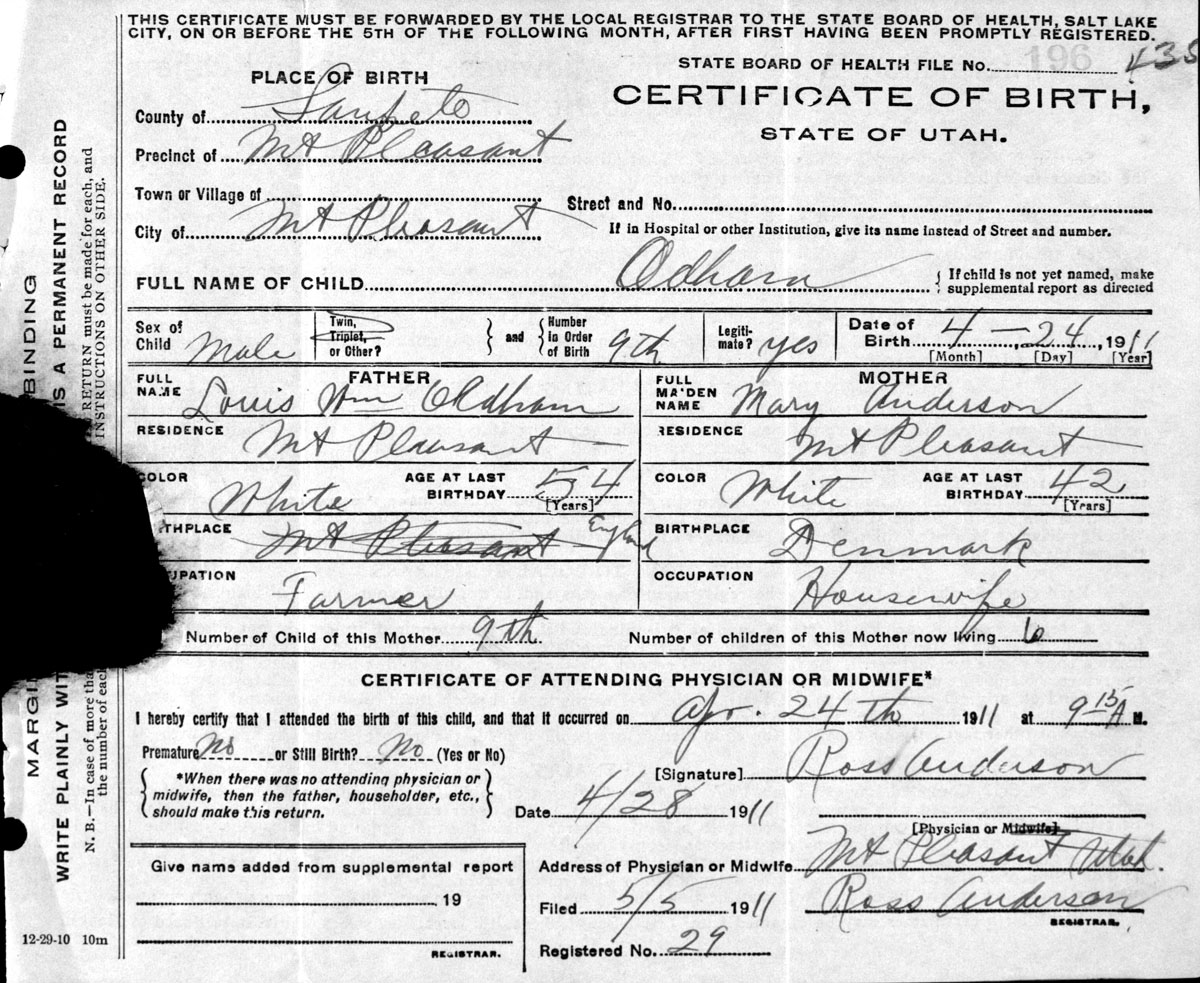 THIS CERTIFICATE MUST BE FORWARDED BY THE LOCAL REGISTRAR TO THE STATE BOARD OF HEALTH, SALT LAKE
CITY, ON OR BEFORE THE 5TH OF THE FOLLOWING MONTH, AFTER FIRST HAVING BEEN PROMPTLY REGISTERED.
STATE BOARD OF HEALTH FILE No. 196 438
PLACE OF BIRTH
CERTIFICATE OF BIRTH,
STATE OF UTAH.
County of Sanpete
Precinct of Mt Pleasant
Town or Village of
Street and No.
City of Mt Pleasant
If in Hospital or other Institution, give its name instead of Street and number.
FULL NAME OF CHILD Odham { If child is not yet named, make
supplemental report as directed
Sex of Child Male
Twin, Triplet, or Other?
and Number in Order of Birth 9th
Legiti-mate? yes
Date of Birth 4 - 24, 1911
[Month] [Day] [Year]
FATHER
FULL NAME Louis Wm Oldham
MOTHER
FULL MAIDEN NAME Mary Anderson
RESIDENCE Mt Pleasant
RESIDENCE Mt Pleasant
COLOR White AGE AT LAST BIRTHDAY 54 [Years]
COLOR White AGE AT LAST BIRTHDAY 42 [Years]
THPLACE Mt Pleasant England
BIRTHPLACE Denmark
UPATION Farmer
OCCUPATION Housewife
Number of Child of this Mother 9th Number of children of this Mother now living 6
CERTIFICATE OF ATTENDING PHYSICIAN OR MIDWIFE*
I hereby certify that I attended the birth of this child, and that it occurred on Apr. 24th 1911 at 9 15 A M.
Premature No or Still Birth? No (Yes or No)
{ *When there was no attending physician or
midwife, then the father, householder, etc.,
should make this return. }
[Signature] Ross Anderson
Date 4/28 1911
[Physician or Midwife]
Address of Physician or Midwife Mt Pleasant Utah.
Give name added from supplemental report
19
REGISTRAR.
Filed 5/5 1911 Ross Anderson
REGISTRAR.
Registered No. 29
12-29-10 10m
MARGI BINDING
WRITE PLAINLY WIT IS A PERMANENT RECORD
N. B.—In case of more tha RETURN must be made for each, and
the number of each INSTRUCTIONS ON OTHER SIDE.